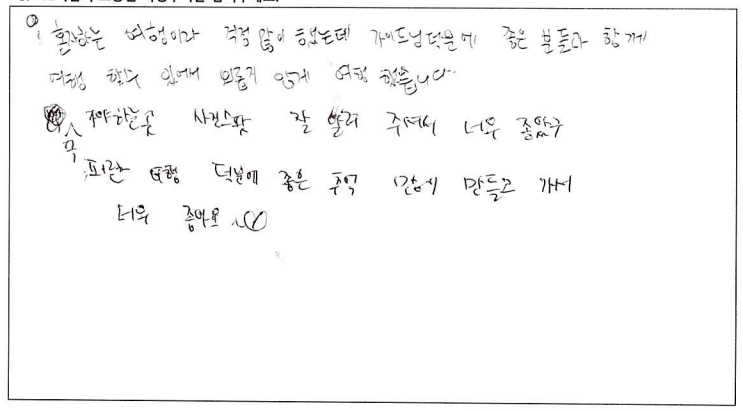 혼자하는 여행이라 걱정 많이 했었는데 가이드님덕분에 좋은 분들과 함께
여행 할수 있어서 외롭지 않게 여행 했습니다..
꼭 가야하는곳 사진스팟 잘 알려 주셔서 너무 좋았구
여행 덕분에 좋은 추억 만들고 가서
너무 좋아요